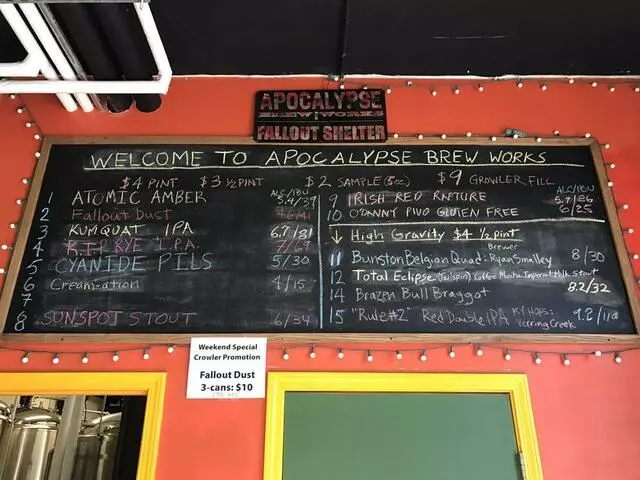 APOCALYPSE
BREW WORKS
FALLOUT SHELTER
WELCOME TO APOCALYPSE BREW WORKS
$4 PINT $3 1/2 PINT $2 SAMPLE (5oz) $9 GROWLER FILL
ALC/IBU
1 ATOMIC AMBER 5.4/37
2 Fallout Dust
3 KUMQUAT IPA 6.7/81
4 R.I.P RYE I.P.A. 7/69
5 CYANIDE PILS 5/30
6 Cream-ation 4/15
7
8 SUNSPOT STOUT 6/34
ALC/IBU
9 IRISH RED RAPTURE 5.7/26
10 O'DANNY PIVO GLUTEN FREE 6/25
↓ High Gravity $4 1/2 pint
Brewer
11 Bunston Belgian Quad: Ryan Smalley 8/30
12 Total Eclipse (Tailspin) Coffee Mocha Imperial Milk Stout
8.2/32
14 Brazen Bull Braggot
15 "Rule #2" Red Double IPA KY HOPS:
Yerring Creek
Weekend Special
Crowler Promotion
Fallout Dust
3-cans: $10